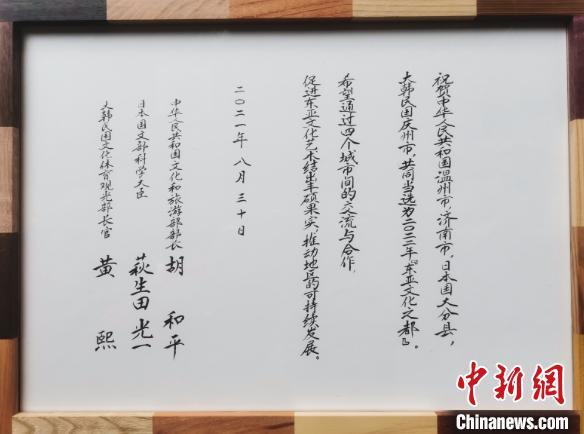 祝贺中华人民共和国温州市、济南市，日本国大分县，
大韩民国庆州市，共同当选为二〇二二年『东亚文化之都』。
希望通过四个城市间的交流与合作，
促进东亚文化艺术结出丰硕果实，推动地区的可持续发展。
二〇二一年 八月 三十日
中华人民共和国文化和旅游部部长 胡 和平
日本国文部科学大臣 萩生田 光一
大韩民国文化体育观光部长官 黄 熙
中新網
Chinanews.com